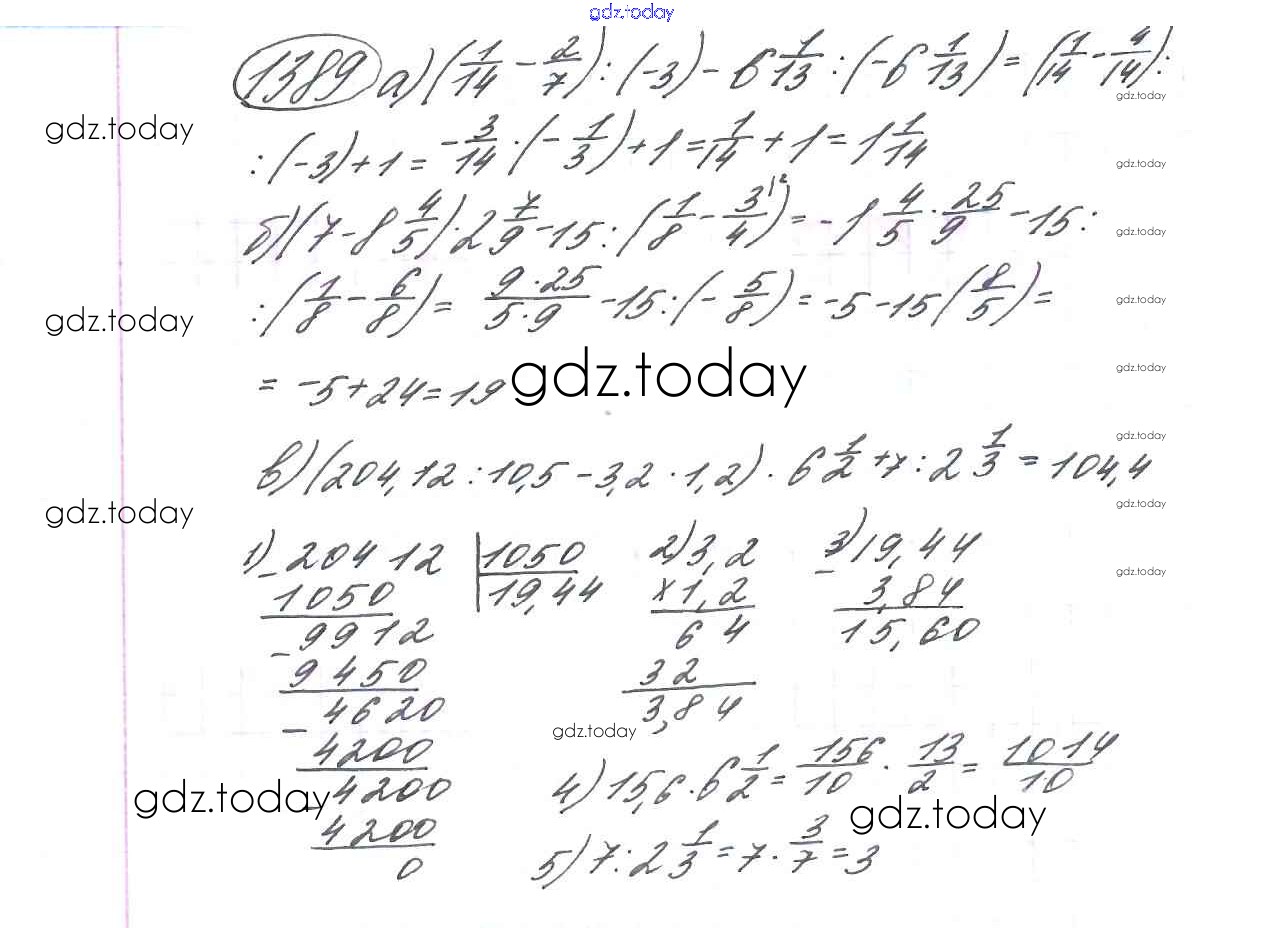 gdz.today
1389 а) (1/14 - 2/7) : (-3) - 6 1/13 : (-6 1/13) = (1/14 - 4/14) :
gdz.today
gdz.today
: (-3) + 1 = -3/14 · (-1/3) + 1 = 1/14 + 1 = 1 1/14
gdz.today
б) (7 - 8 4/5) · 2 7/9 - 15 : (1/8 - 3/4) = -1 4/5 · 25/9 - 15 :
gdz.today
: (1/8 - 6/8) = 9·25/5·9 - 15 : (-5/8) = -5 - 15 (8/5) =
gdz.today
gdz.today
= -5 + 24 = 19
gdz.today
gdz.today
gdz.today
в) (204,12 : 10,5 - 3,2 · 1,2) · 6 1/2 + 7 : 2 1/3 = 104,4
gdz.today
gdz.today
1) - 20412 | 1050
1050 | 19,44
- 9912
9450
- 4620
4200
- 4200
4200
0
2) 3,2
× 1,2
64
32
3,84
3) - 19,44
3,84
15,60
gdz.today
gdz.today
4) 15,6 · 6 1/2 = 156/10 · 13/2 = 1014/10
gdz.today
gdz.today
5) 7 : 2 1/3 = 7 · 3/7 = 3